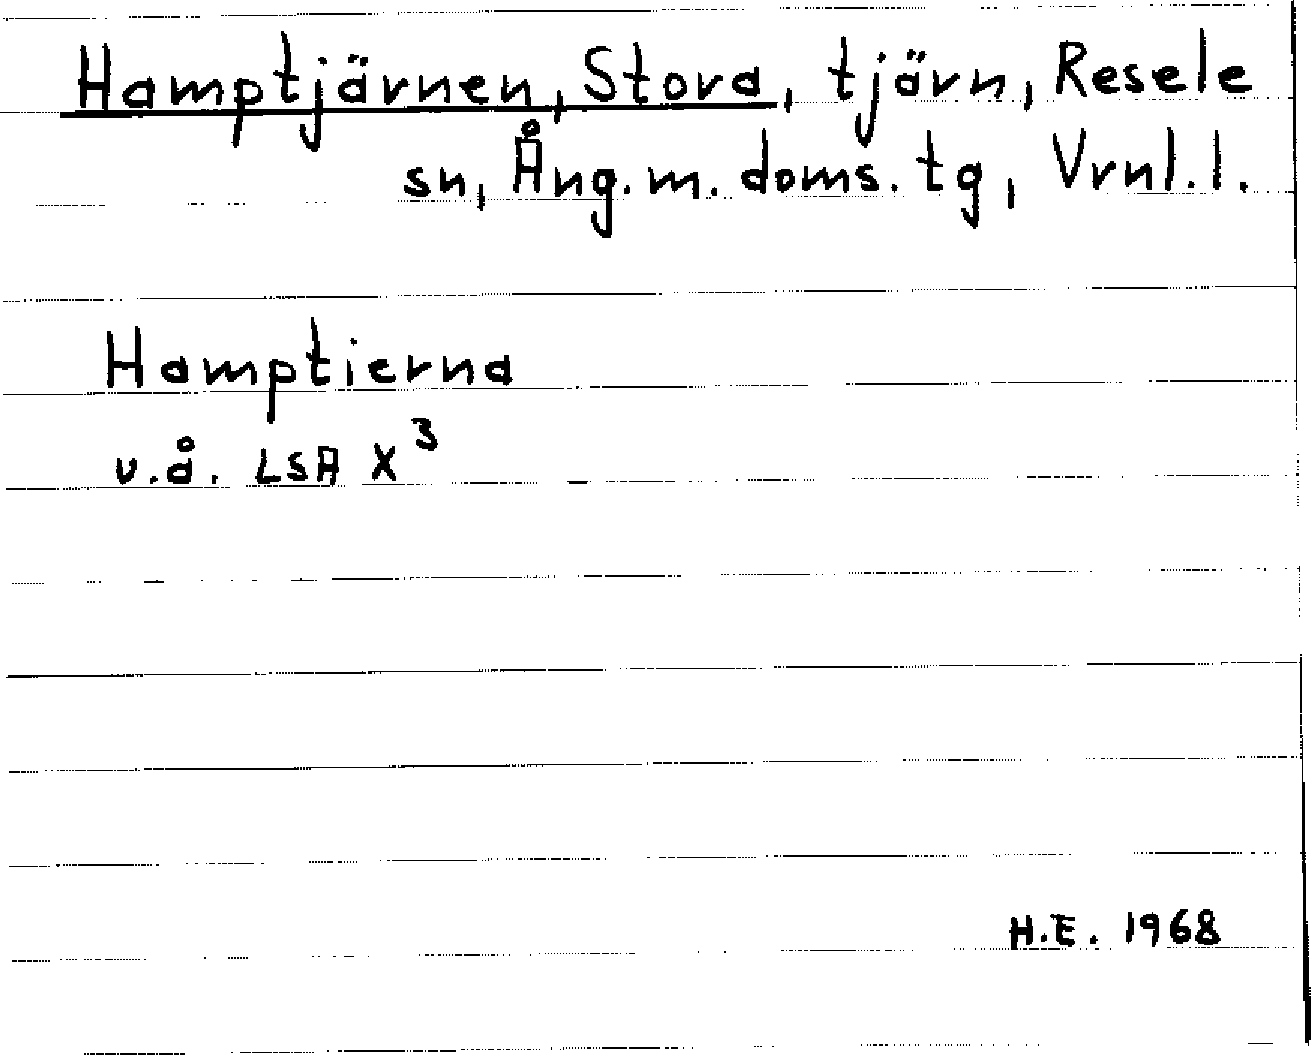 Hamptjärnen, Stora, tjärn, Resele
sn, Ång.m. doms. tg, Vrnl.l.
Hamptierna
u.å. LSA X³
H.E. 1968